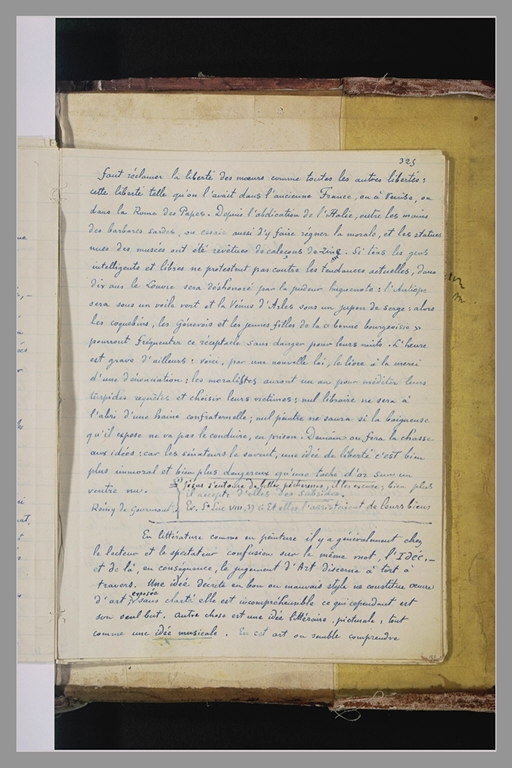 325
faut réclamer la liberté des mœurs comme toutes les autres libertés:
cette liberté telle qu'on l'avait dans l'ancienne France, ou à Venise, ou
dans la Rome des Papes. Depuis l'abdication de l'Italie, entre les mains
des barbares sardes, on essaie aussi d'y faire régner la morale, et les statues
nues des musées ont été revêtues de caleçons de zinc. Si tous les gens
intelligents et libres ne protestent pas contre les tendances actuelles, dans
dix ans le Louvre sera déshonoré par la pudeur huguenote: l'Antiope
sera sous un voile vert et la Vénus d'Arles sous un jupon de serge: alors
les coquebins, les Génevois et les jeunes filles de la « bonne bourgeoisie »
pourront fréquenter ce réceptacle sans danger pour leurs nuits. L'heure
est grave d'ailleurs: voici, par une nouvelle loi, le livre à la merci
d'une dénonciation; les moralistes auront un an pour méditer leurs
turpides requêtes et choisir leurs victimes; nul libraire ne sera à
l'abri d'une haine confraternelle; nul peintre ne saura si la baigneuse
qu'il expose ne va pas le conduire, en prison. Demain on fera la chasse
aux idées: car les sénateurs le savent, une idée de liberté c'est bien
plus immoral et bien plus dangereux qu'une tache d'or sur un
ventre nu.
Jésus s'entoure de belles pécheresses, il les excuse; bien plus
il accepte d'elles des subsides.
Rémy de Gourmont
Ev. St Luc VIII, 3) « Et elles l'assistaient de leurs biens
En littérature comme en peinture il y a généralement chez
le lecteur et le spectateur confusion sur le même mot, l'Idée,
et de là, en conséquence, le jugement d'Art discerné à tort à
travers. Une idée décrite en bon ou mauvais style ne constitue œuvre
d'art exposée sans clarté elle est incompréhensible ce qui cependant est
son seul but. Autre chose est une idée littéraire, picturale, tout
comme une idée musicale. En cet art on semble comprendre